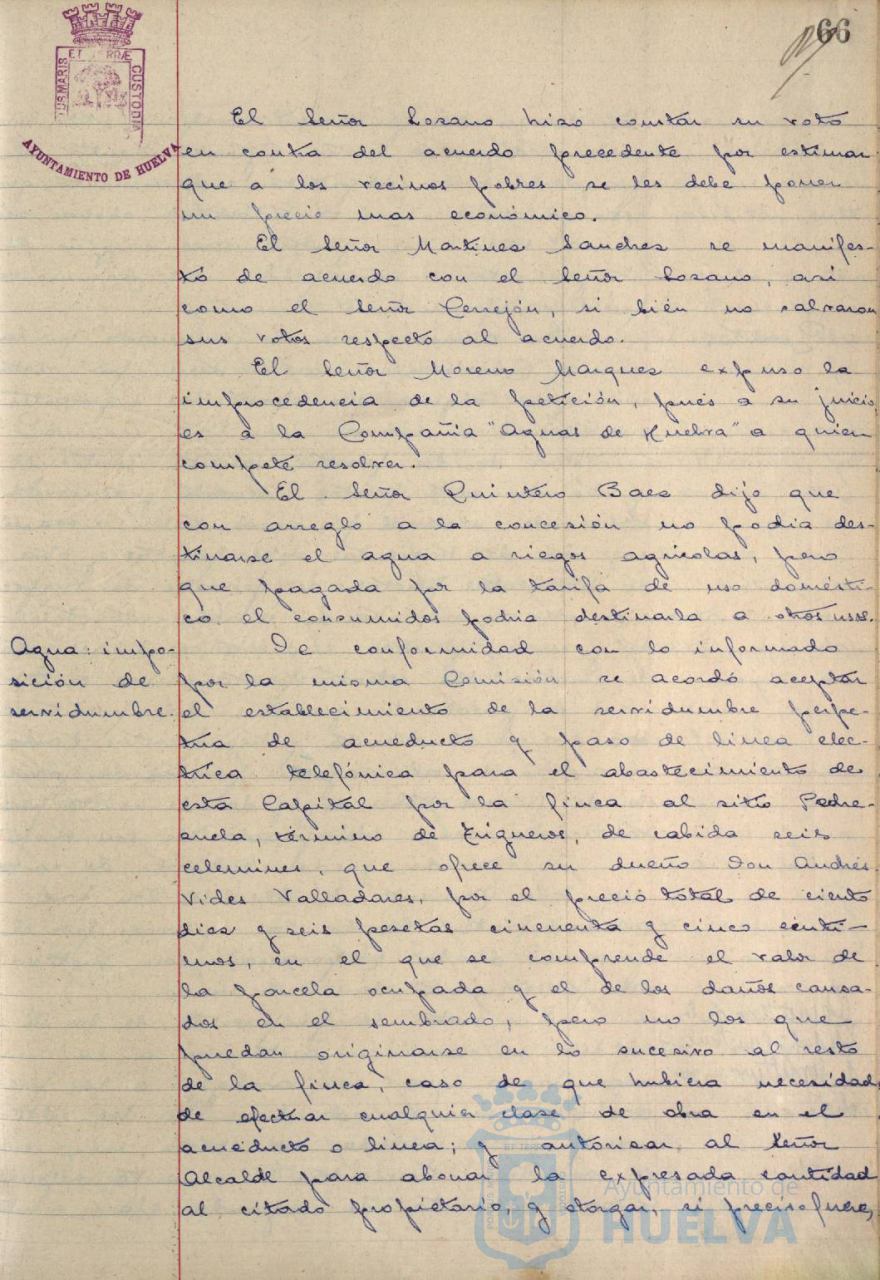 66
PORTUS MARIS ET TERRÆ CUSTODIA
AYUNTAMIENTO DE HUELVA
El Señor Lozano hizo constar su voto
en contra del acuerdo precedente por estimar
que a los vecinos pobres se les debe poner
un precio mas económico.
El Señor Martinez Sanchez se manifes-
tó de acuerdo con el Señor Lozano, asi
como el Señor Cerrejón, si bién no salvaron
sus votos respecto al acuerdo.
El Señor Moreno Marquez expuso la
improcedencia de la petición, pués a su juicio,
es a la Compañia "Aguas de Huelva" a quien
compete resolver.
El Señor Quintero Baez dijo que
con arreglo a la concesión no podia des-
tinarse el agua a riegos agricolas, pero
que pagada por la tarifa de uso domésti-
co el consumidos podria destinarla a otros usos.
Agua: impo-
sición de
servidumbre.
De conformidad con lo informado
por la misma Comisión se acordó aceptar
el establecimiento de la servidumbre perpe-
tua de acueducto y paso de linea eléc-
trica telefónica para el abastecimiento de
esta Capital por la finca al sitio Pedre-
zuela, término de Trigueros, de cabida seis
celemines, que ofrece su dueño Don Andrés
Vides Valladares, por el precio total de ciento
diez y seis pesetas cincuenta y cinco cénti-
mos, en el que se comprende el valor de
la parcela ocupada y el de los daños causa-
dos en el sembrado, pero no los que
puedan originarse en lo sucesivo al resto
de la finca, caso de que hubiera necesidad
de efectuar cualquier clase de obra en el
acueducto o linea; y autorizar al Señor
Alcalde para abonar la expresada cantidad
al citado propietario, y otorgar, si preciso fuere,
Ayuntamiento de
HUELVA